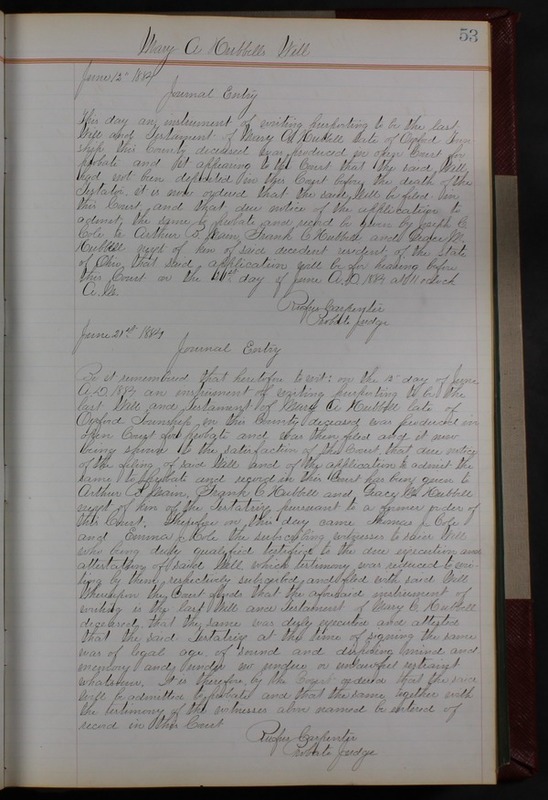 53
Mary A Hubbells Will
June 12th 1884
Journal Entry
This day an instrument of writing purporting to be the last
Will and Testament of Mary A Hubbell late of Oxford Town
ship this County deceased was produced in open Court for
probate and it appearing to the Court that the said Will
had not been deposited in this Court before the death of the
Testatrix it is now ordered that the said Will be filed in
this Court and that due notice of the application to
admit the same to probate and record be given by Joseph C
Cole to Arthur B Frank C Hubbell and
Hubbell next of kin of said decedent resident of the State
of Ohio, that said application will be for hearing before
this Court on the 21st day of June A.D. 1884 at 11 o'clock
A.M.
Rufus Carpenter
Probate Judge
June 21st 1884
Journal Entry
Be it remembered that heretofore to wit: on the day of June
A.D. 1884 an instrument of writing purporting to be the
last Will and Testament of Mary A Hubbell late of
Oxford Township in this County deceased was produced in
Open Court for probate and was then filed and it now
being shown to the satisfaction of this Court that due notice
of the filing of said Will and of the application to admit the
same to probate and record in this Court has been given to
Arthur Frank C Hubbell and Hubbell
next of kin of the Testatrix pursuant to a former order of
this Court. Therefore on this day came Thomas J. Cole
and Emma J. Cole the subscribing witnesses to said Will
who being duly qualified testified to the due execution and
attestation of said Will which testimony was reduced to wri-
ting by them respectively subscribed and filed with said Will
Whereupon the Court finds that the aforesaid instrument of
writing is the last Will and Testament of Mary A Hubbell
deceased, that the same was duly executed and attested
that the said Testatrix at the time of signing the same
was of legal age of sound and disposing mind and
memory and under no undue or unlawful restraint
whatsoever. It is therefore by the Court ordered that the said
Will be admitted to probate and that the same together with
the testimony of the witnesses above named be entered of
record in this Court
Rufus Carpenter
Probate Judge